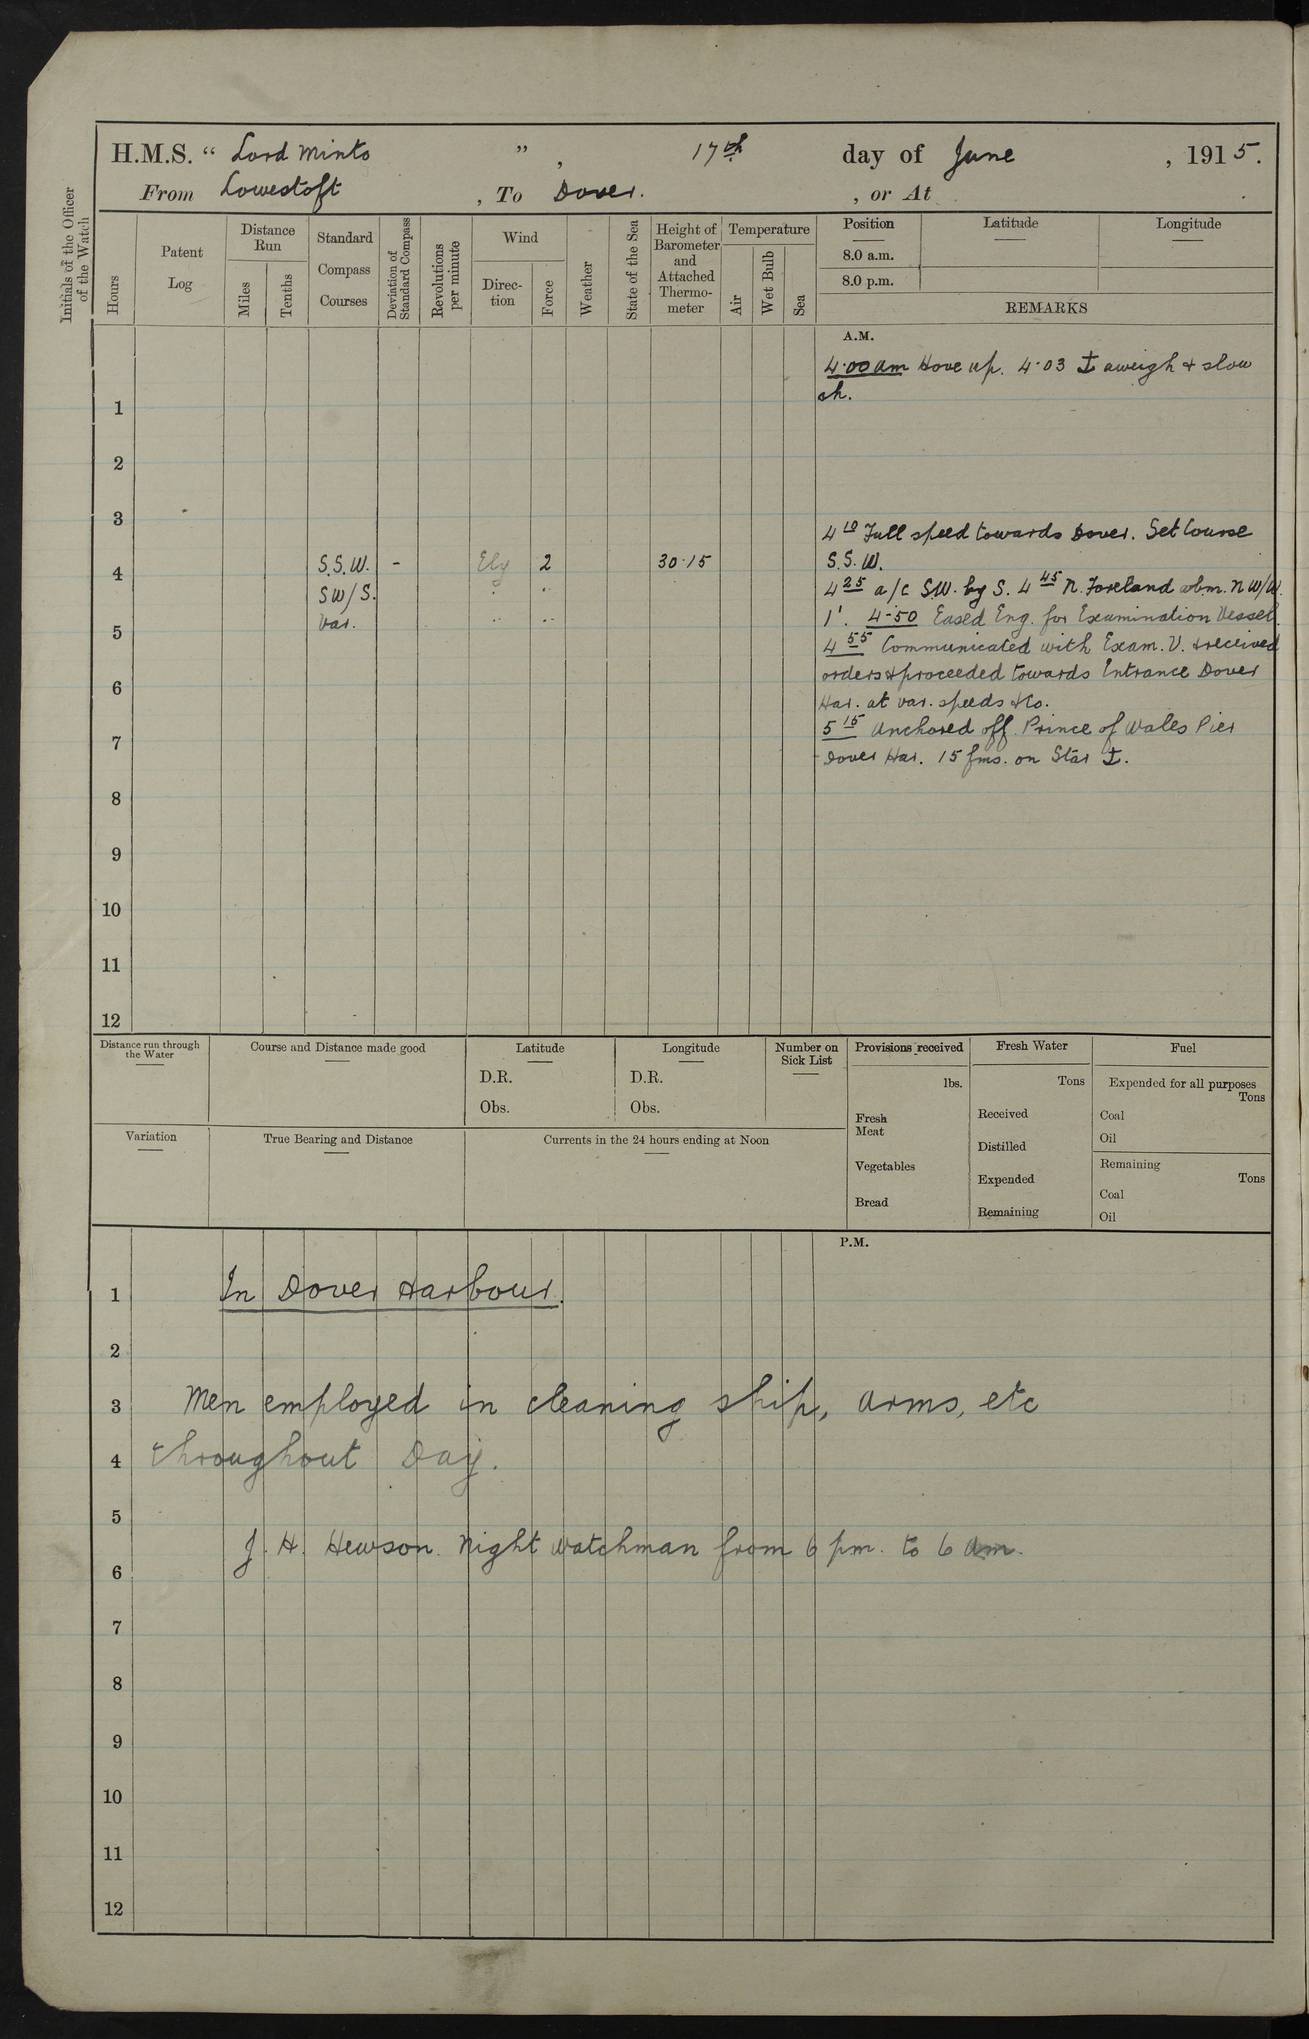 H.M.S. “ Lord Minto ” , 17th day of June , 1915.
From Lowestoft , To Dover. , or At .
Initials of the Officer
of the Watch
Hours
Patent
Log
Distance
Run
Miles
Tenths
Standard
Compass
Courses
Deviation of
Standard Compass
Revolutions
per minute
Wind
Direc-
tion
Force
Weather
State of the Sea
Height of
Barometer
and
Attached
Thermo-
meter
Temperature
Air
Wet Bulb
Sea
Position Latitude Longitude
8.0 a.m.
8.0 p.m.
REMARKS
A.M.
4.00 am Hove up. 4.03 ⚓ aweigh & slow
ah.
1
2
3
4 10 Full speed towards Dover. Set Course
4 S.S.W. - Ely 2 30.15 S.S.W.
SW/S. " " 4 25 a/c S.W. by S. 4 45 N. Foreland abm. NW/W.
5 Var. " " 1'. 4-50 Eased Eng. for Examination Vessel.
4 55 Communicated with Exam. V. & received
6 orders & proceeded towards Entrance Dover
Har. at var. speeds & Co.
7 5 15 Anchored off Prince of Wales Pier
Dover Har. 15 fms. on Star ⚓.
8
9
10
11
12
Distance run through
the Water
Course and Distance made good
Latitude
D.R.
Obs.
Longitude
D.R.
Obs.
Number on
Sick List
Provisions received
lbs.
Fresh
Meat
Vegetables
Bread
Fresh Water
Tons
Received
Distilled
Expended
Remaining
Fuel
Expended for all purposes
Tons
Coal
Oil
Remaining
Tons
Coal
Oil
Variation
True Bearing and Distance
Currents in the 24 hours ending at Noon
P.M.
1 In Dover Harbour.
2
3 Men employed in cleaning ship, arms, etc
4 throughout Day.
5
J. H. Hewson. Night watchman from 6 pm. to 6 am.
6
7
8
9
10
11
12